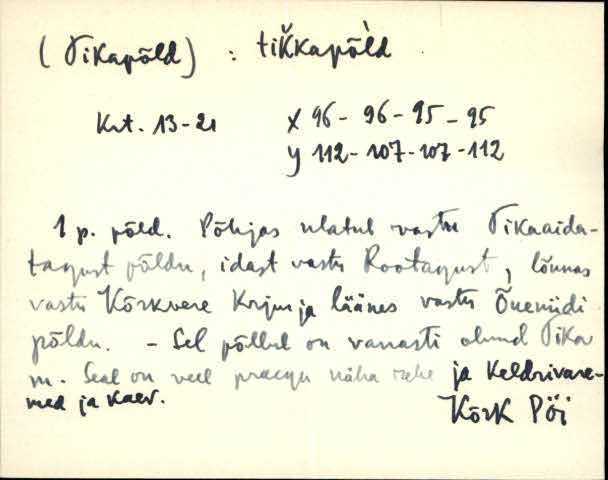 (Tikapõld) : tik̆kapõ̀ld.
Krt. 13-21 X 96- 96- 95- 95
y 112-107-107-112
1 p. põld. Põhjas ulatub vastu Tikaaida-
tagust põldu, idast vastu Rootagust, lõunas
vastu Kõrkvere Karjus ja läänes vastu Õuemüdi
põldu. - Sel põllul on vanasti olnud Tika
m. Seal on veel praegu näha rehe ja Keldrivare-
med ja kaev.
Kõrk Pöi